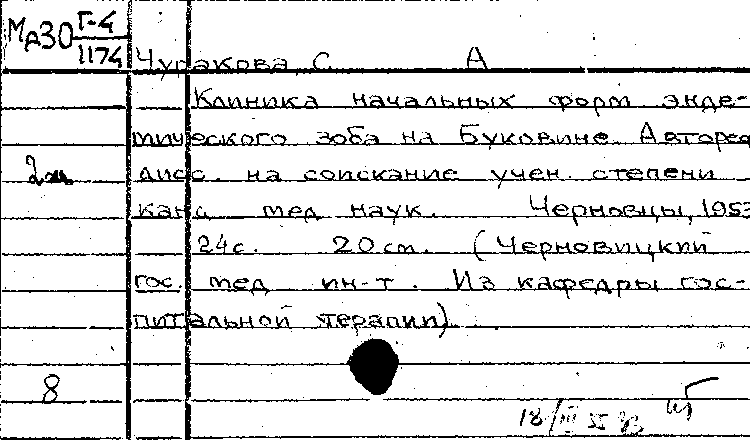 Мд30 Г-4
1174
Чуракова, С. А
Клиника начальных форм энде-
мического зоба на Буковине. Автореф
дисс. на соискание учен. степени
канд мед наук. Черновцы, 1953
24с. 20 см. (Черновицкий
гос. мед ин-т. Из кафедры гос-
питальной терапии).
8
18/III